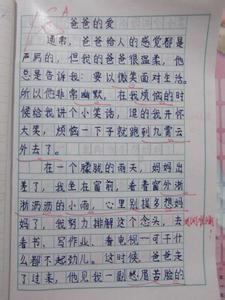 爸爸的爱
通常，爸爸给人的感觉都是
严厉的，但我的爸爸很温柔，他
总是告诉我：要以微笑面对生活。
所以他非常幽默，在我烦恼的时
候给我讲个小笑话，让我哈哈
大笑，烦恼一下子就跑到九霄云
外去了。
在一个朦胧的雨天，妈妈出
差了，我坐在窗前，看着窗外淅
淅沥沥的小雨，心里别提多想妈
妈了，我努力排解这个念头，去
看书、写作业、看电视……可干什
么都不起劲儿。这时候，爸爸走
了过来，他见我一副愁眉苦脸的